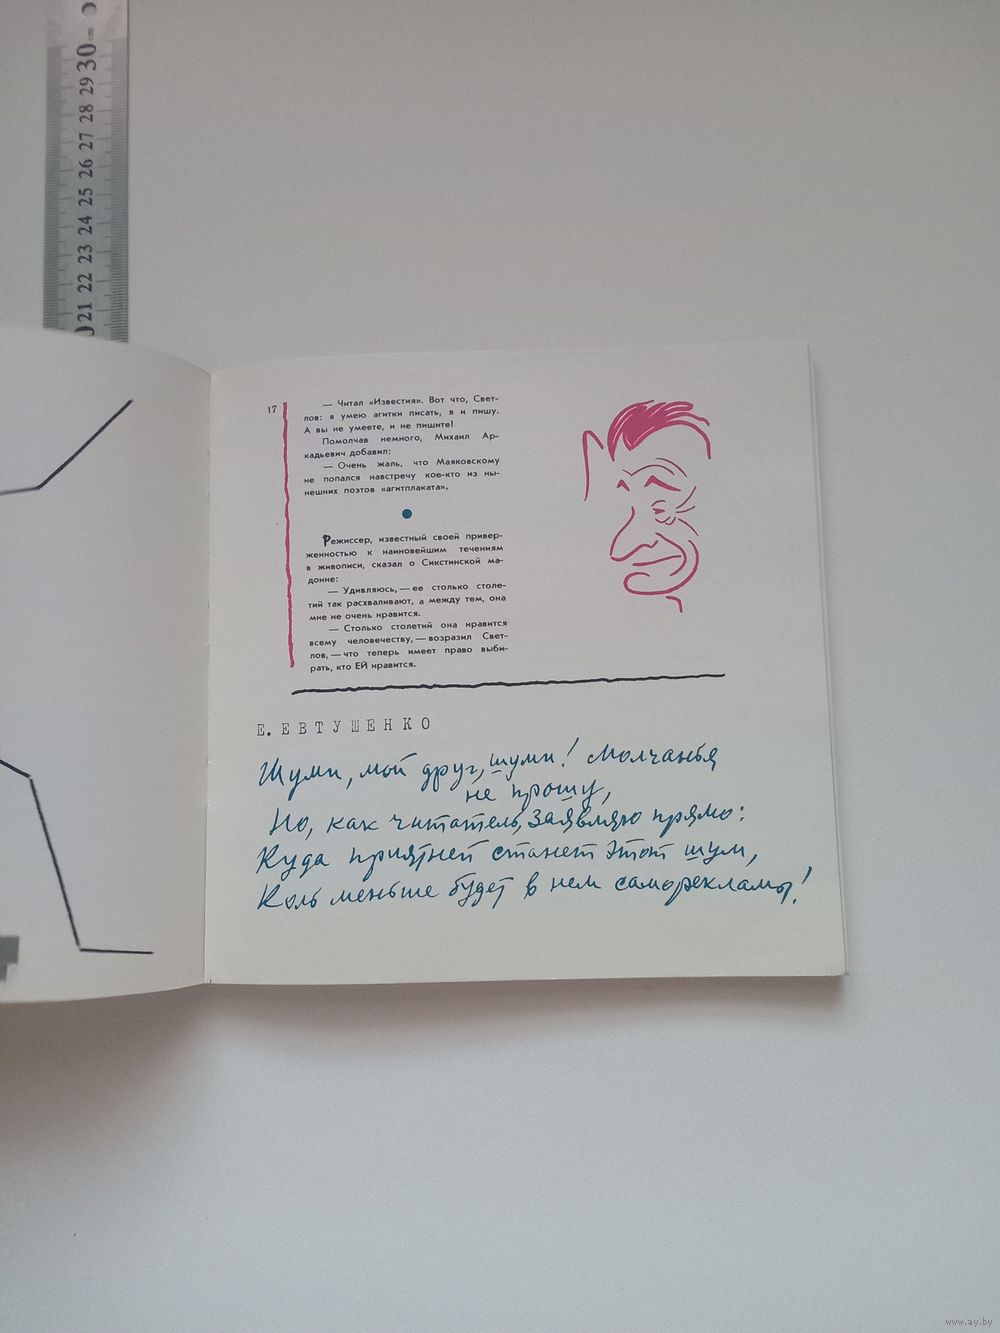 30
29
28
27
26
25
24
23
22
21
17
— Читал «Известия». Вот что, Свет-
лов: я умею агитки писать, я и пишу.
А вы не умеете, и не пишите!
Помолчав немного, Михаил Ар-
кадьевич добавил:
— Очень жаль, что Маяковскому
не попался навстречу кое-кто из ны-
нешних поэтов «агитплаката».
Режиссер, известный своей привер-
женностью к наиновейшим течениям
в живописи, сказал о Сикстинской ма-
донне:
— Удивляюсь, — ее столько столе-
тий так расхваливают, а между тем, она
мне не очень нравится.
— Столько столетий она нравится
всему человечеству, — возразил Свет-
лов, — что теперь имеет право выби-
рать, кто ЕЙ нравится.
Е. ЕВТУШЕНКО
Шуми, мой друг, шуми! Молчанья
не прошу,
Но, как читатель, заявляю прямо:
Куда приятней станет этот шум,
Коль меньше будет в нем саморекламы!
www.ay.by